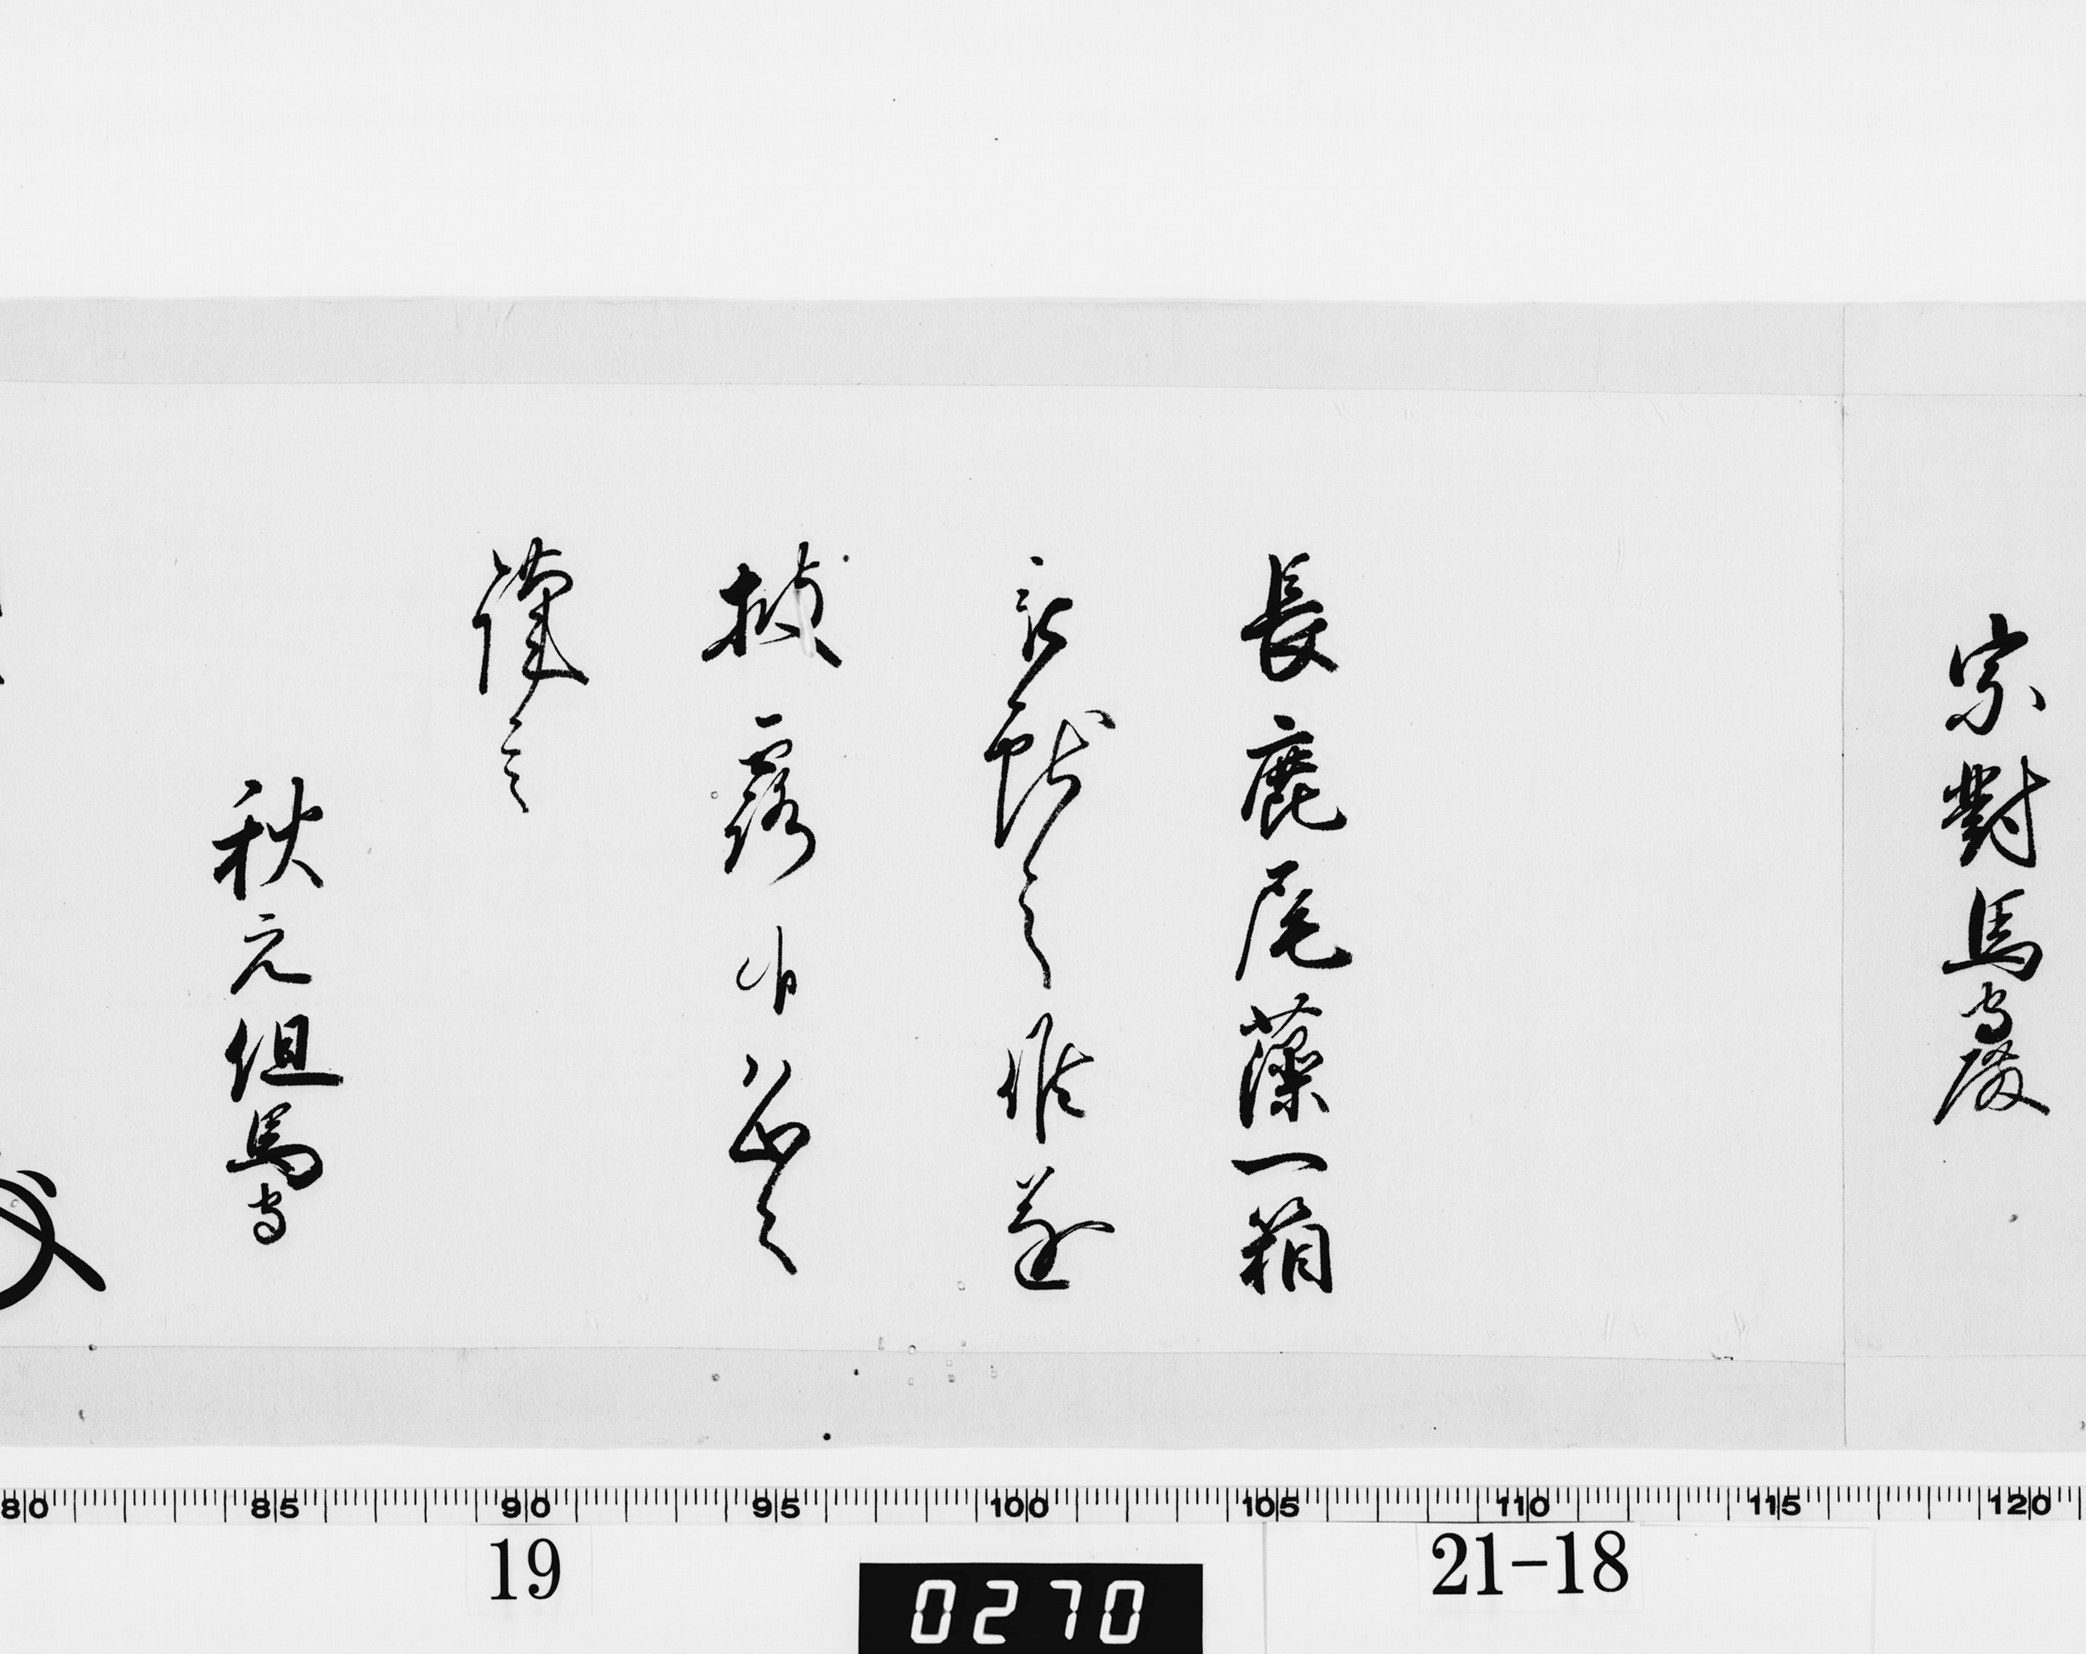 宗對馬守殿
長鹿尾藻一箱
被獻之候遂
披露候恐々
謹言
秋元但馬守
80 85 90 95 100 105 110 115 120
19
0270
21-18